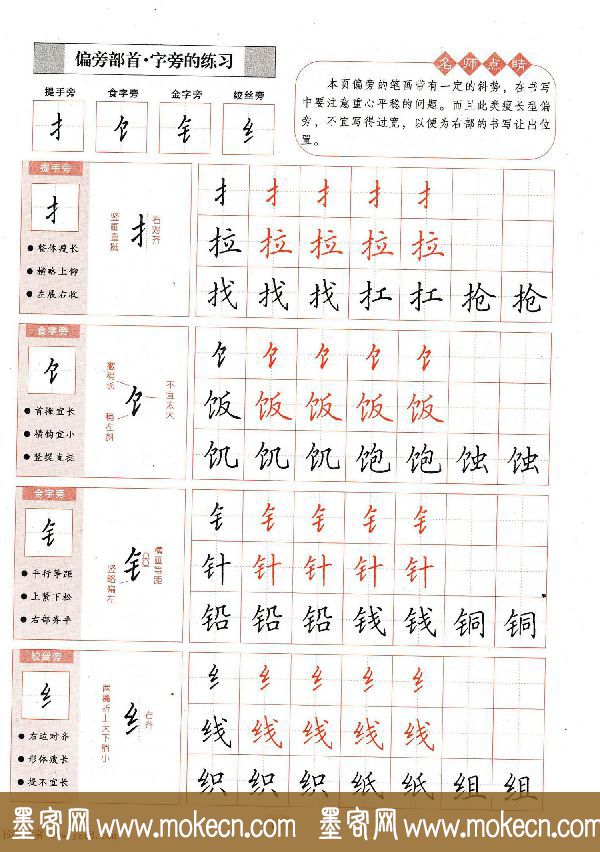 偏旁部首·字旁的练习
提手旁 食字旁 金字旁 绞丝旁
扌 饣 钅 纟
名师点睛
本页偏旁的笔画带有一定的斜势，在书写
中要注意重心平稳的问题。而且此类瘦长型偏
旁，不宜写得过宽，以便为右部的书写让出位
置。
提手旁
扌
整体瘦长
横略上仰
左展右收
竖画直挺
扌
右对齐
扌 扌 扌 扌 扌
拉 拉 拉 拉 拉
找 找 找 扛 扛 抢 抢
食字旁
饣
首撇宜长
横钩宜小
竖提直挺
撇稍长
稍左斜
饣
不宜太大
饣 饣 饣 饣 饣
饭 饭 饭 饭 饭
饥 饥 饥 饱 饱 蚀 蚀
金字旁
钅
平行等距
上紧下松
右部齐平
竖略偏左
钅
横画等距
钅 钅 钅 钅 钅
针 针 针 针 针
铅 铅 铅 钱 钱 铜 铜
绞丝旁
纟
右边对齐
形体瘦长
提不宜长
两撇折上大下稍小
纟
右齐
纟 纟 纟 纟 纟
线 线 线 线 线
织 织 织 纸 纸 组 组
墨客网 www.mokecn.com 墨客网 www.mokecn.com